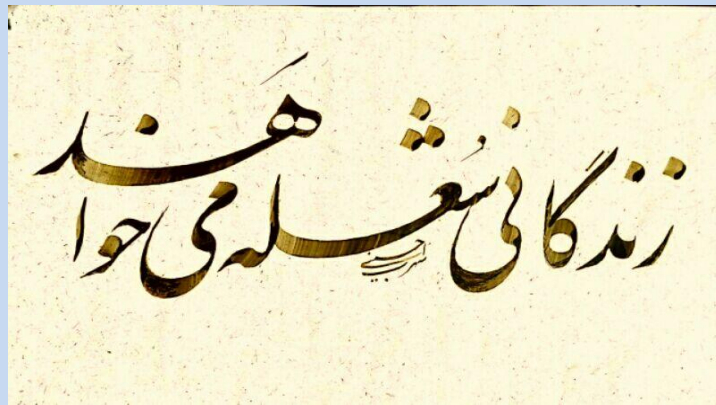 زندگانی شُعله می خواهَد